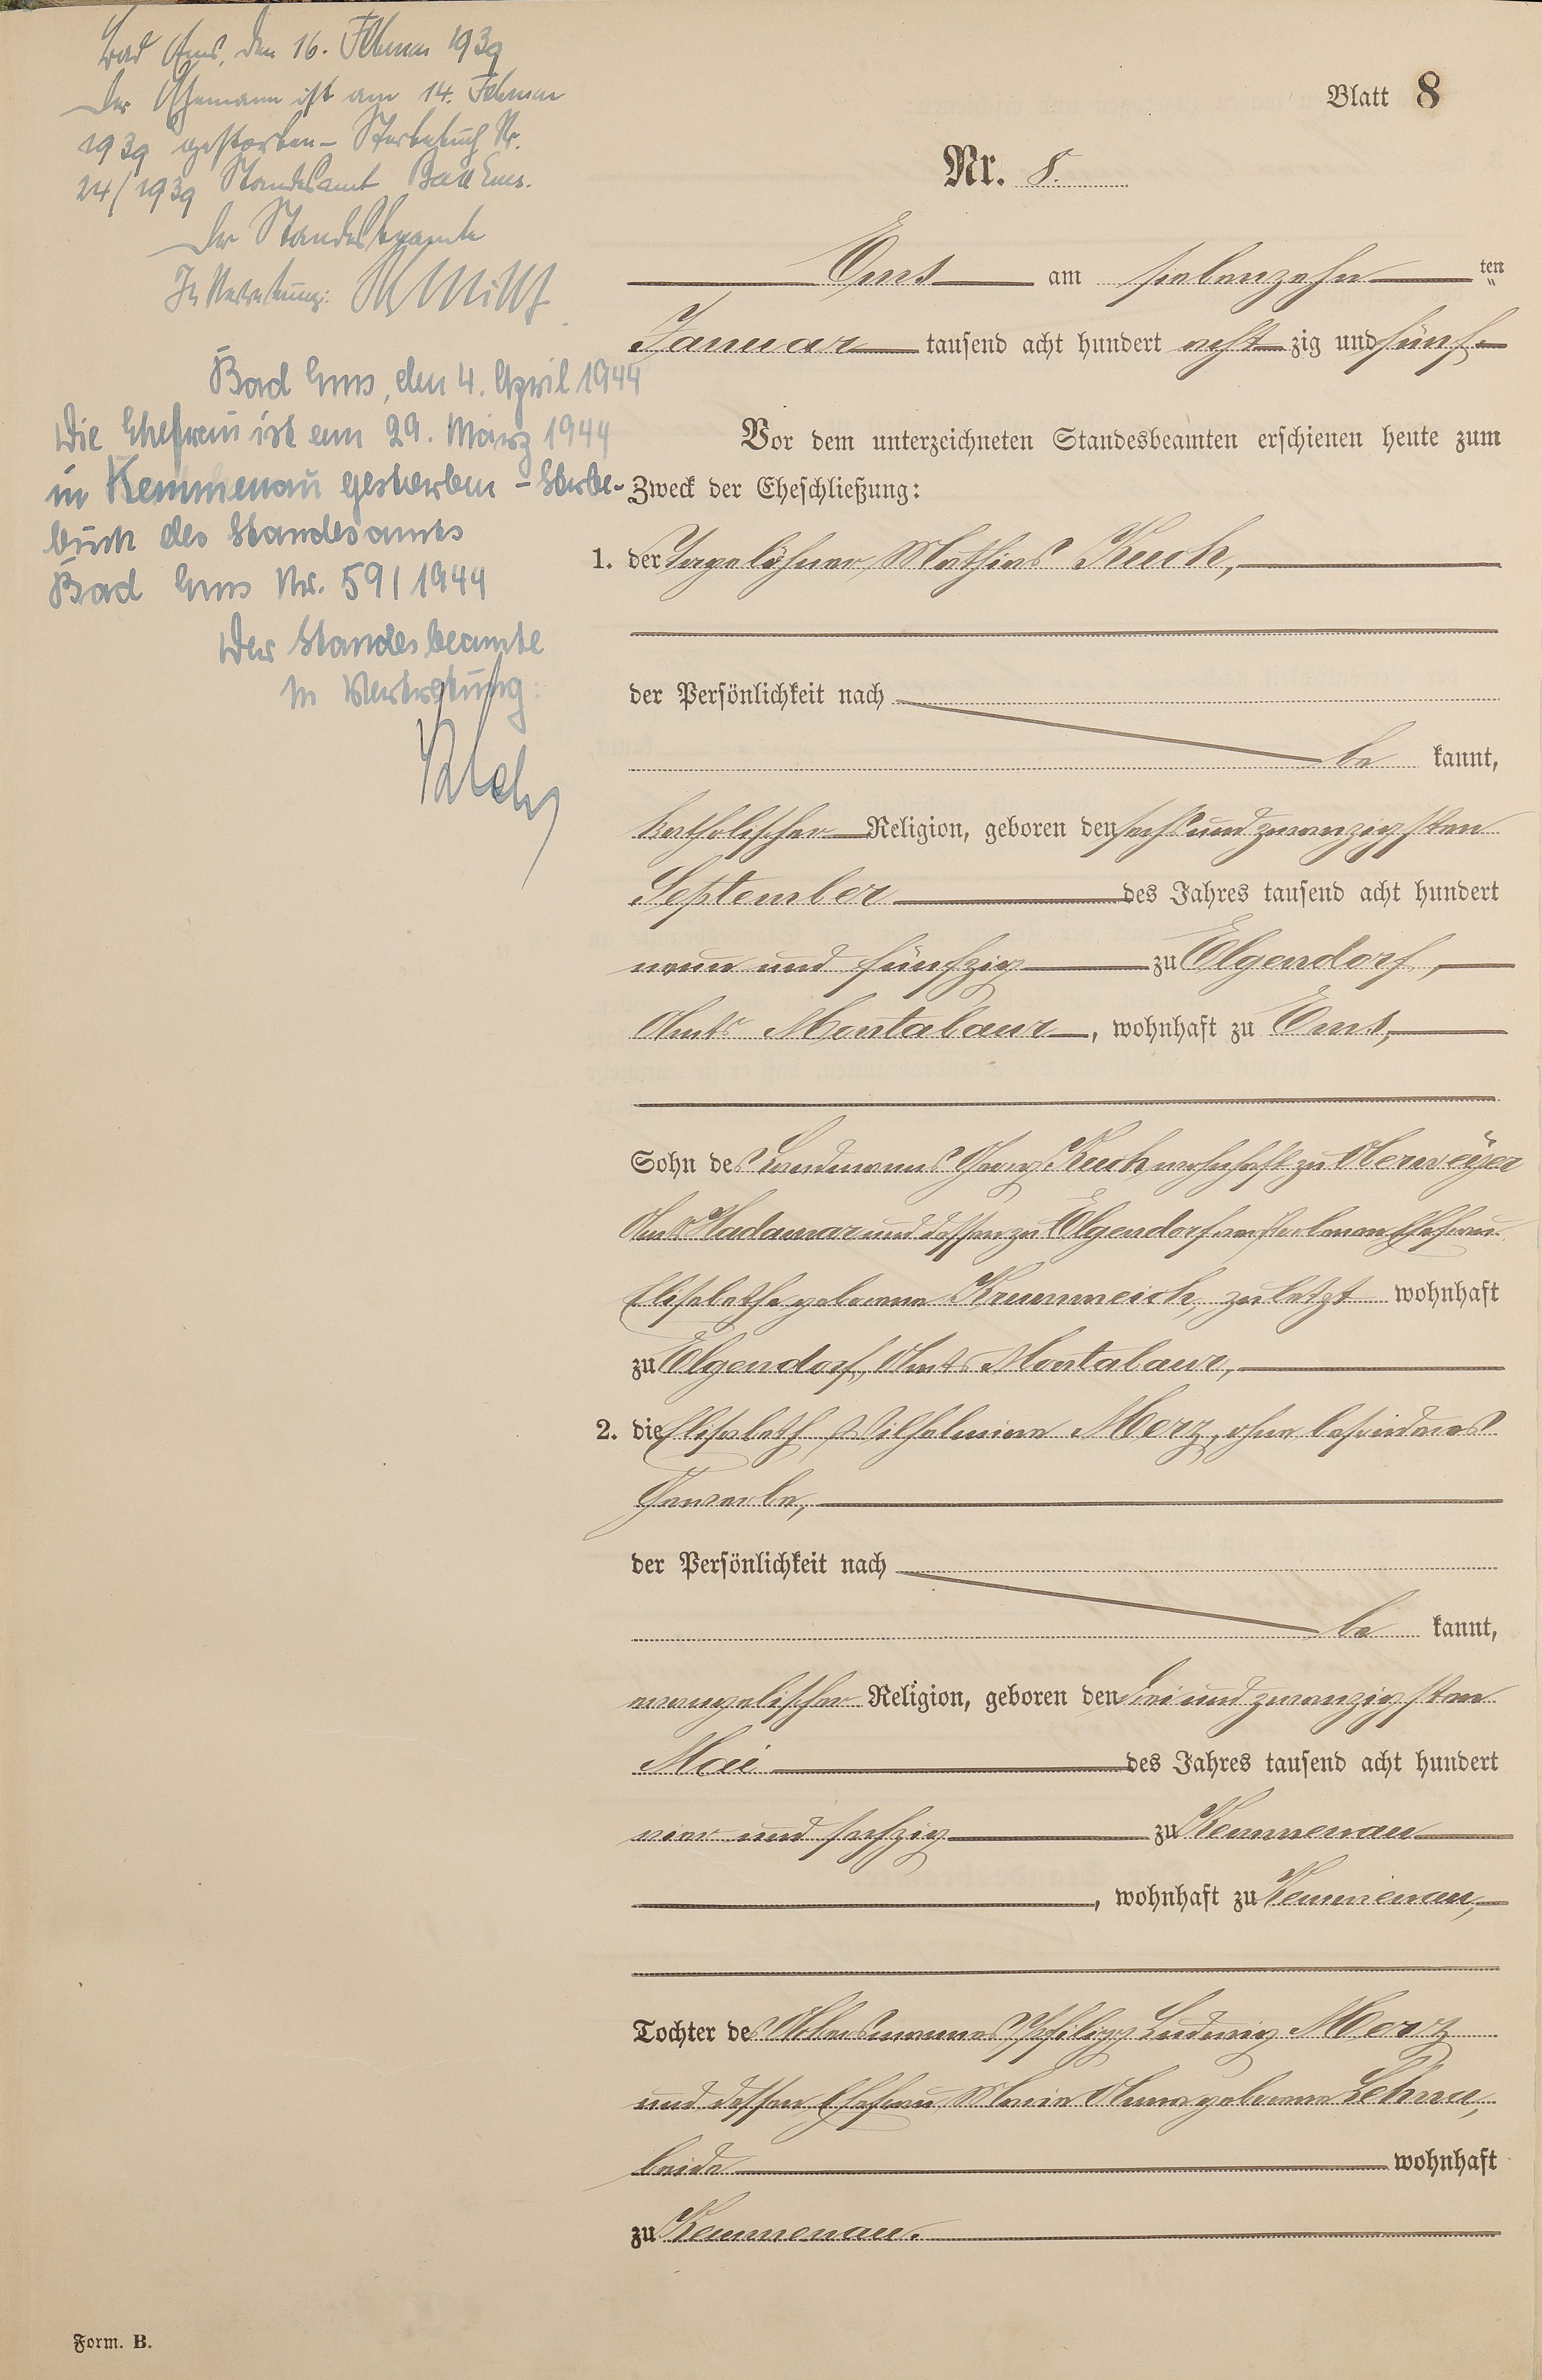 Bad Ems, den 16. Februar 1939
Der Ehemann ist am 14. Februar
1939 gestorben – Sterbebuch Nr.
24/1939 Standesamt Bad Ems.
Der Standesbeamte
In Vertretung:
Bad Ems, den 4. April 1944
Die Ehefrau ist am 29. März 1944
in Kemmenau gestorben – Sterbe-
buch des Standesamts
Bad Ems Nr. 59/1944
Der Standesbeamte
In Vertretung:
Blatt 8
Nr. 8.
Ems am siebenzehnten
Januar tausend acht hundert achtzig und fünf
Vor dem unterzeichneten Standesbeamten erschienen heute zum
Zweck der Eheschließung:
1. der Tagelöhner Mathias Kuch,
der Persönlichkeit nach
bekannt,
katholischer Religion, geboren den sechsundzwanzigsten
September des Jahres tausend acht hundert
neun und fünfzig zu Elgendorf,
Amts Montabaur, wohnhaft zu Ems,
Sohn des Landmanns Georg Kuch wohnhaft zu Oberweÿer
Amts Hadamar und dessen zu Elgendorf verstorbenen Ehefrau
Elisabethe geborene Krummeich, zuletzt wohnhaft
zu Elgendorf, Amts Montabaur,
2. die Elisabeth Wilhelmine Merz, ohne besonderes
Gewerbe,
der Persönlichkeit nach
bekannt,
evangelischer Religion, geboren den dreiundzwanzigsten
Mai des Jahres tausend acht hundert
vier und sechzig zu Kemmenau
, wohnhaft zu Kemmenau,
Tochter des Ackersmannes Philipp Ludwig Merz
und dessen Ehefrau Maria Anna geborene Lehna,
beide wohnhaft
zu Kemmenau.
Form. B.